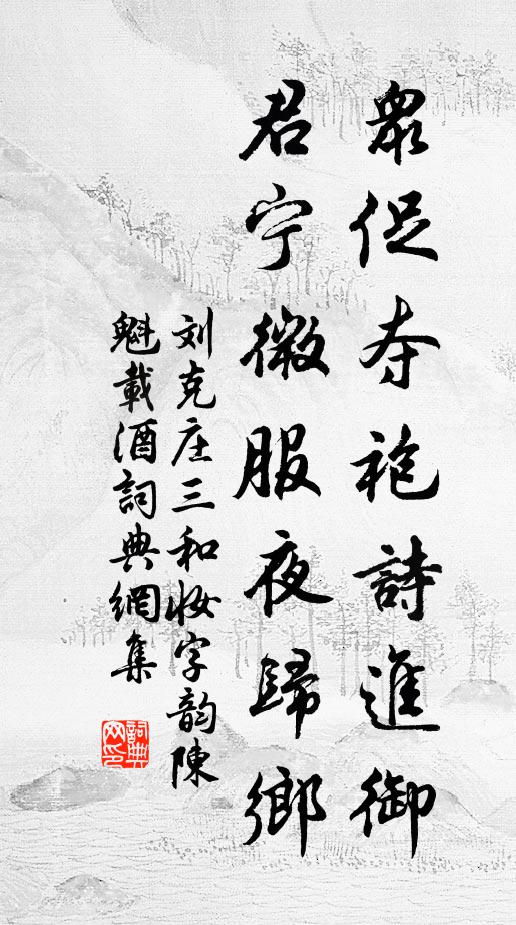 眾促夺袍詩進御
君宁微服夜歸鄉
刘克庄三和妆字韵陳
魁載酒詞典網集
詞典网印